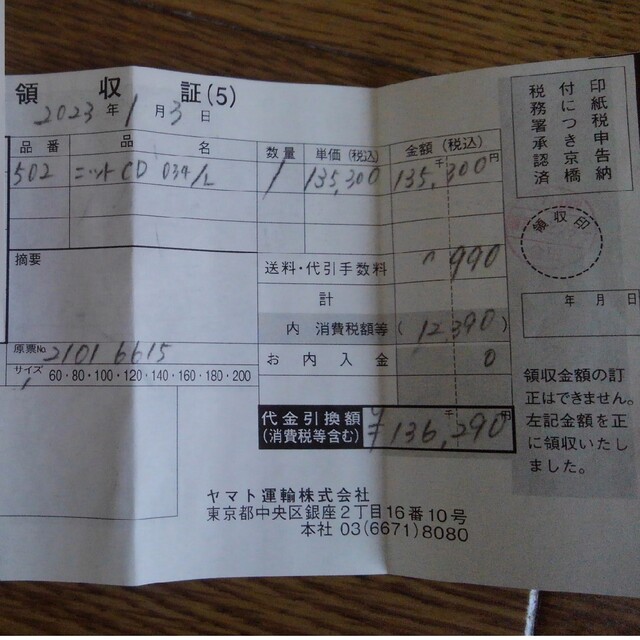 領収証(5)
2023年1月3日
品番 品名 数量 単価(税込) 金額(税込)
千 円
502 ニットCD 034/L 1 135,300 135,300
摘要
送料・代引手数料 990
計
内 消費税額等 (12,390)
お内入金 0
原票No 21016615
サイズ 60・80・100・120・140・160・180・200
代金引換額
(消費税等含む) ¥136,290
千 円
ヤマト運輸株式会社
東京都中央区銀座2丁目16番10号
本社 03(6671)8080
印紙税申告納
付につき京橋
税務署承認済
領収印
年 月 日
領収金額の訂
正はできません。
左記金額を正
に領収いたし
ました。